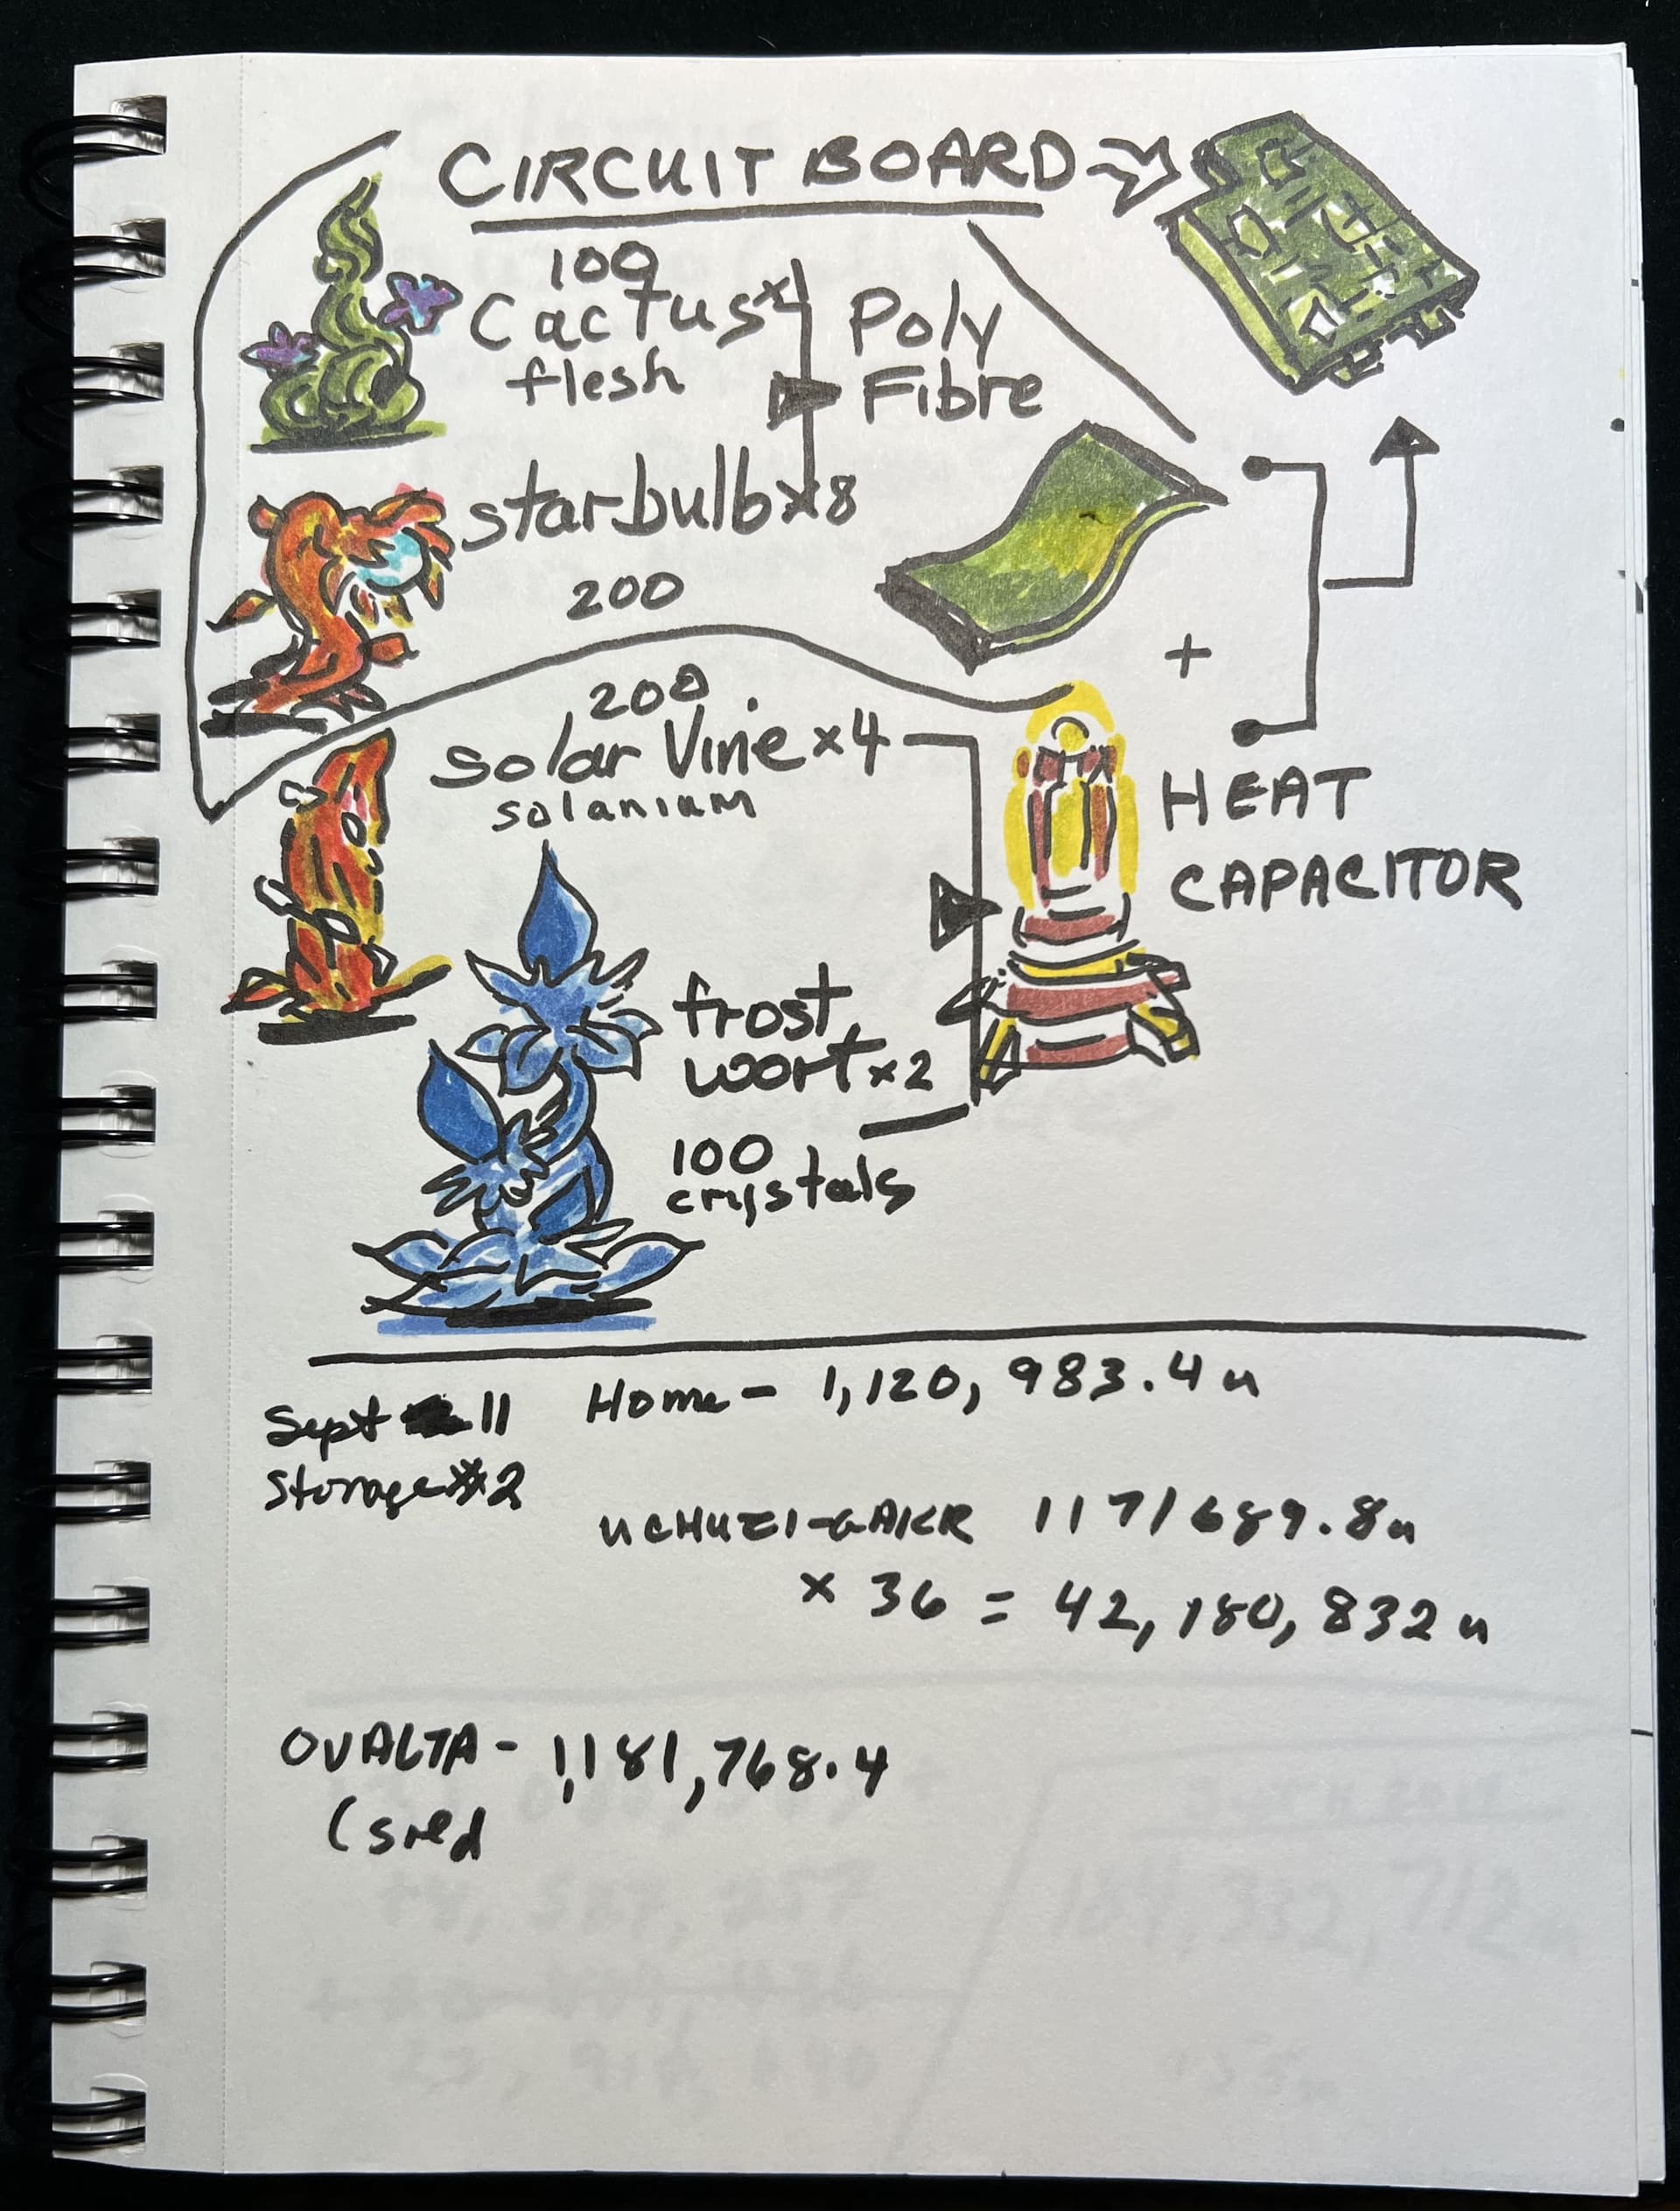 CIRCUIT BOARD
100
Cactus x1
flesh
Poly
Fibre
starbulb x8
200
+
200
Solar Vine x4
solanium
HEAT
CAPACITOR
frost
woort x2
100
crystals
Sept 11 Home - 1,120,983.4u
Storage #2
UCHUZI-GAKR 1171689.8u
x 36 = 42,180,832u
OVALTA - 1,181,768.4